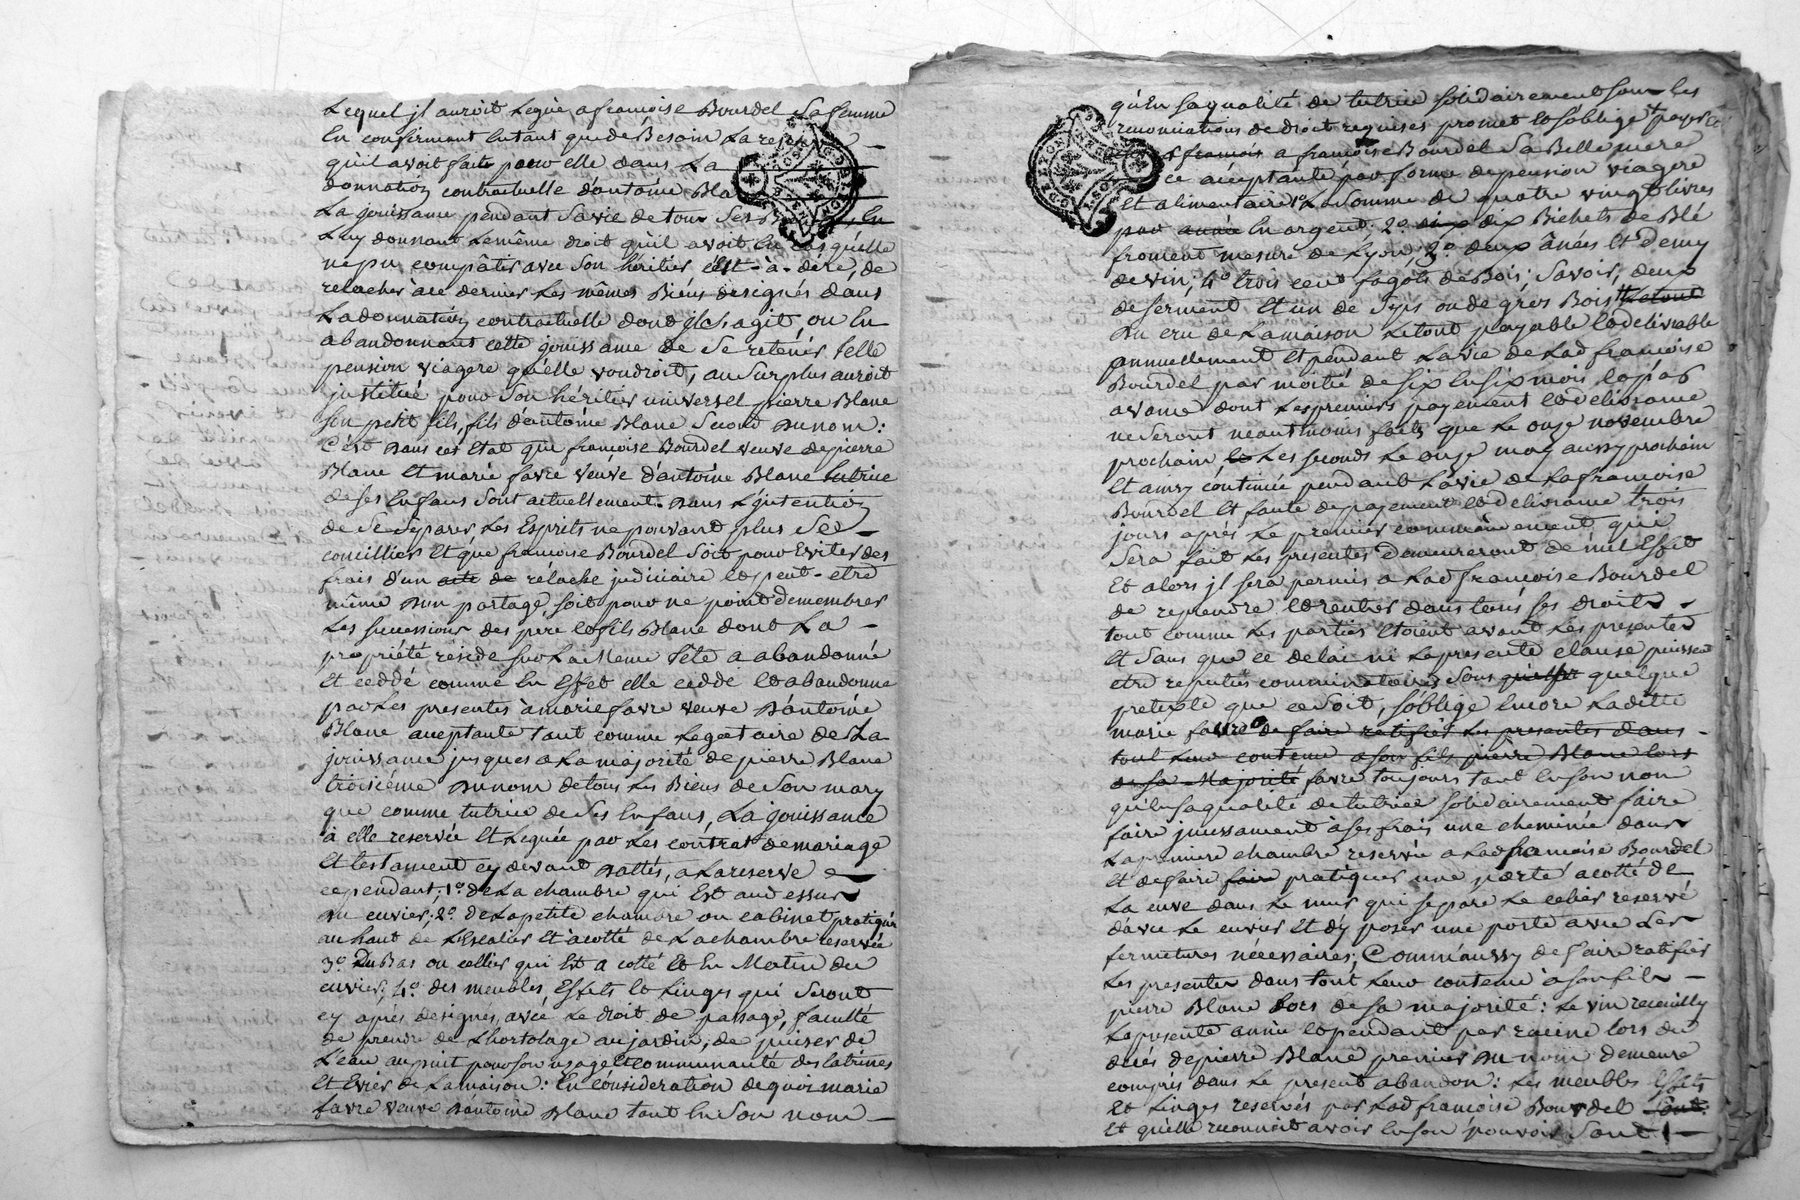 Lequel jl auroit Legué a françoise Bourdel Sa femme
En confirmant Entant que de Besoin La reserve
qu'il avoit faite pour elle dans La
donnation contractuelle d'antoine Bla
La jouissance pendant Sa vie de tous Ses B En
Luy donnant Le même droit qu'il avoit En cas qu'elle
ne pu compâtir avec Son héritier c'Est-à-dire, de
relacher à ce dernier Les mêmes Biens designés dans
La donnation contractuelle dont jl S'agit, ou En
abandonnant cette jouissance de Se retenir telle
pension viagere qu'elle voudroit, au Surplus auroit
jnstitué pour Son héritier universel pierre Blanc
Son petit fils, fils d'antoine Blanc Second du nom:
C'est dans cet Etat que françoise Bourdel veuve de pierre
Blanc Et marie favre veuve d'antoine Blanc tutrice
de Ses Enfans Sont actuellement. dans L'jntention
de Se Séparer Les Esprits ne pouvant plus Se
concillier Et que françoise Bourdel Soit pour Eviter des
frais d'un acte de rélache judiciaire Et peut-etre
même d'un partage, Soit pour ne point demembrer
Les Successions des pere Et fils Blanc dont La
propriété réside Sur La Meme Tête a abandonné
Et cedde comme En Effet elle cedde Et abandonne
par Les presentes à marie favre veuve d'antoine
Blanc acceptante tant comme Legataire de La
jouissance jusques a La majorité de pierre Blanc
troisiéme du nom de tous Les Biens de Son mary
que comme tutrice de Ses Enfans, La jouissance
à elle reservée Et Leguée par Les contrat de mariage
Et testament cy devant dattés, a La reserve
cependant; 1o de La chambre qui Est au dessus
du cuvier; 2o. de La petite chambre ou cabinet pratiqué
au haut de L'Escalier Et à cotté de La chambre reservée
3o Du Bas ou cellier qui Est a cotté Et En Matin du
cuvier; 4o. des meubles, Effets Et Linges qui Seront
cy après designés, avec Le droit de passage, faculté
de prendre de L'hortolage au jardin; de puiser de
L'eau au puit pour Son usage Et communauté des Latrines
Et Evier de La maison: En consideration de quoi marie
favre veuve d'antoine Blanc tant En Son nom
qu'En Sa qualité de tutrice Solidairement Sous Les
renonciations de droit requises promet Et S'oblige payer
françois a françoise Bourdel Sa Belle mere
ce acceptante par forme de pension viagere
Et alimentaire 1o La Somme de quatre vingt Livres
par année En argent; 2o dix Bichets de Blé
froment mesure de Lyon; 3o. deux ânées Et Demy
de vin; 4o trois cent fagots de Bois; Savoir, deux
de Serment Et un de Sijs ou de gros Bois Le tout
du cru de La maison Le tout payable Et delivrable
annuellement Et pendant La vie de Lad françoise
Bourdel par moitié de Six En Six mois Et par
avance dont Les premiers payement Et delivrance
ne Seront neantmoins faits que Le onze novembre
prochain Les Seconds Le onze may aussy prochain
Et ainsy continué pendant La vie de La françoise
Bourdel Et faute de payement Et delivrance trois
jours après Le premier commandement qui
Sera fait Les presentes demeureront de nul Effet
Et alors jl Sera permis a Lad françoise Bourdel
de reprendre Et rentrer dans tous Ses droits
tout comme Les parties Etoient avant Les presentes
Et Sans que ce delai ni La presente clause puissent
etre reputés comminatoires Sous quelque
pretexte que ce Soit, S'oblige Encore Ladette
marie favre de faire ratifier Les presentes dans
tout Leur contenu a Son fils pierre Blanc Lors
de Sa Majorité favre toujours tant En Son nom
qu'En Sa qualité de tutrice Solidairement faire
faire jncessament à Ses frais une cheminée dans
La premiere chambre reservée a Lad françoise Bourdel
Et de faire faire pratiquer une porte a cotté de
La cuve dans Le mur qui Separe Le cellier reservé
d'avec Le cuvier Et d'y poser une porte avec Les
fermetures nécessaires; Comm'aussy de faire ratifier
Les presentes dans tout Leur contenu à Son fils
pierre Blanc Lors de Sa majorité: Le vin receuilly
La presente année Et pendant par racine Lors du
décés de pierre Blanc premier du nom demeure
compris dans Le present abandon: Les meubles Effets
Et Linges reservés par Lad françoise Bourdel Sont
Et qu'elle reconnoit avoir En Son pouvoir Sont